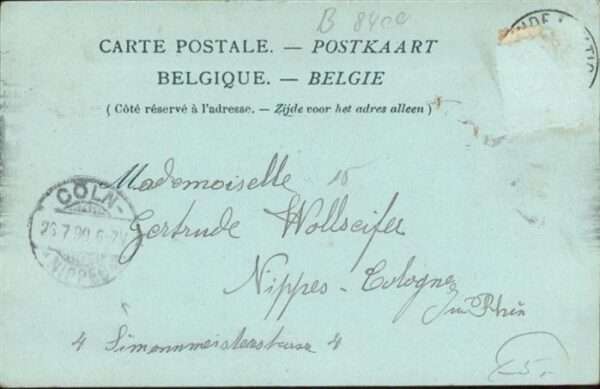 B 8400
CARTE POSTALE. — POSTKAART
BELGIQUE. — BELGIE
( Côté réservé à l'adresse. — Zijde voor het adres alleen )
Mademoiselle
15
CÖLN-
NIPPES
Gertrude Wollseifer
Nippes-Cologne
Rhin
4 Simonmeisterstrasse 4
5.-